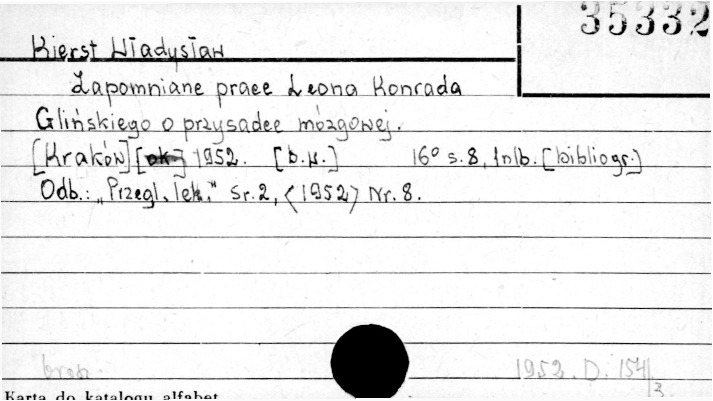 35332
Kierst Władysław
Zapomniane prace Leona Konrada
Glińskiego o przysadce mózgowej.
[Kraków] 1952. [b.w.] 16° s. 8, 1nlb. [bibliogr.]
Odb.: „Przegl. lek." Sr. 2, <1952> Nr. 8.
brosz.
1952. D. 154/3
Karta do katalogu alfabet.